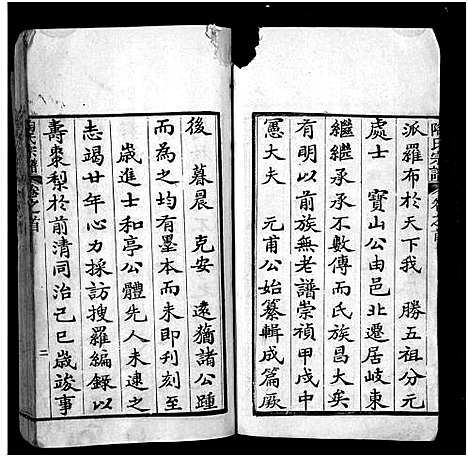 陶氏宗譜 卷之首
派羅布於天下我 勝五祖分元
處士 寶山公由邑北遷居岐東
繼繼承承不數傳而氏族昌大矣
有明以前族無老譜崇禎甲戌中
憲大夫 元甫公始纂輯成篇厥
後 暮晨 克安 遠猶諸公踵
而為之均有墨本而未即刋刻至
歲進士和亭公體先人未逮之
志竭廿年心力採訪搜羅編錄以
壽棗梨於前清同治己巳歲竣事
陶氏宗譜 卷之首 二